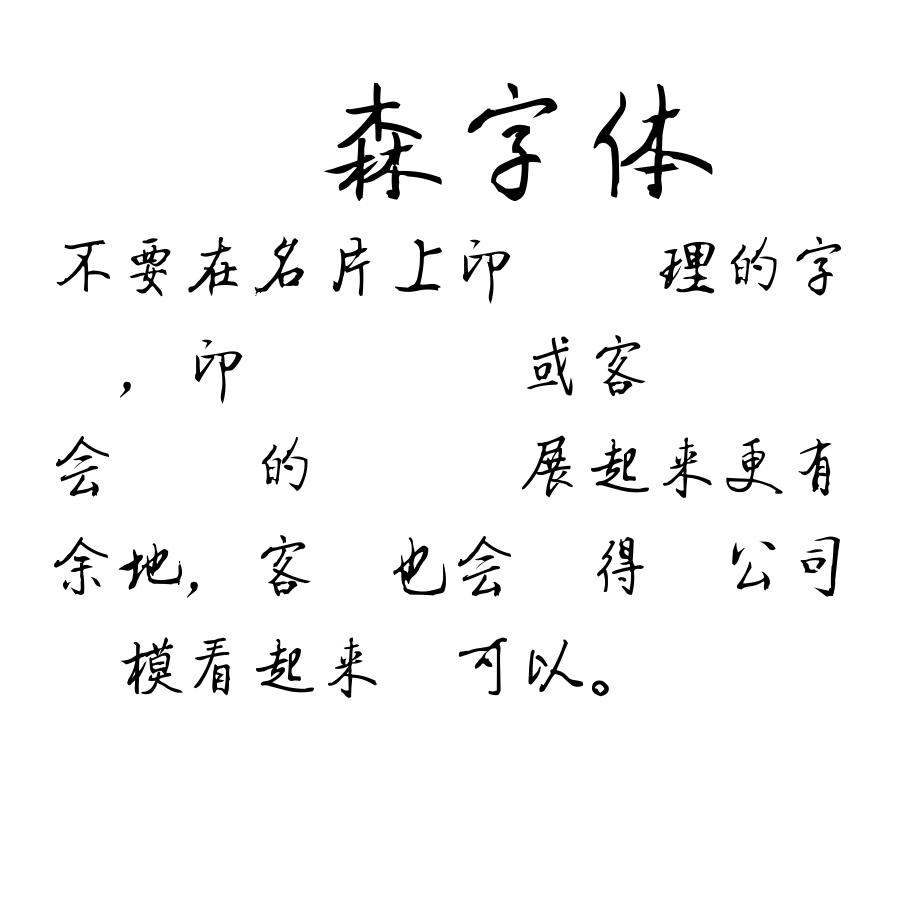 森字体
不要在名片上印 理的字
，印 或客
会 的 展起来更有
余地，客 也会 得 公司
模看起来 可以。